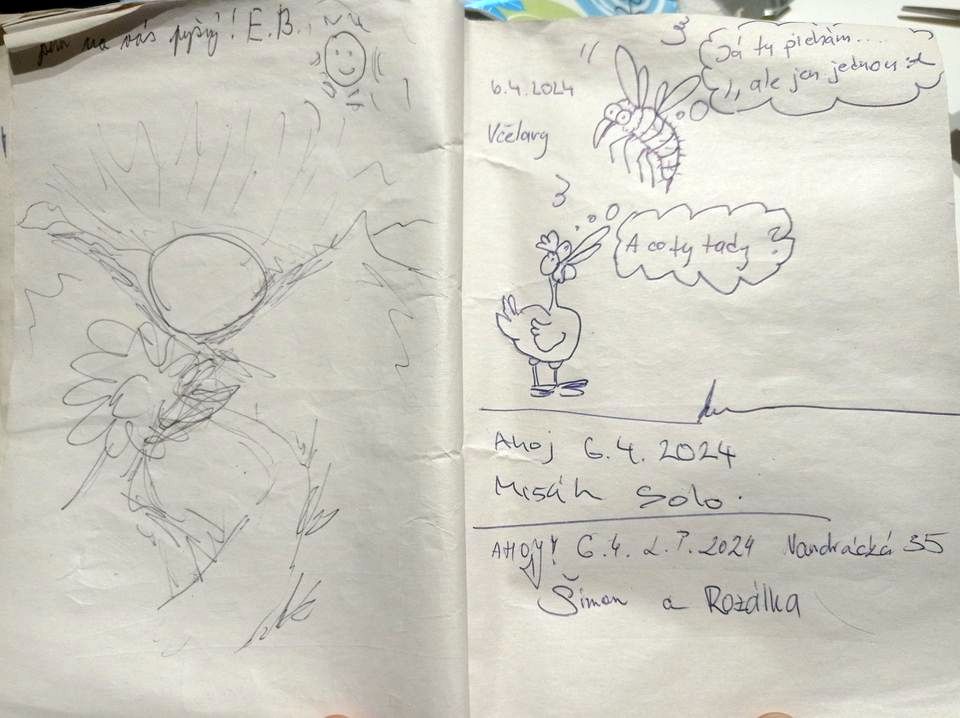 jsem na vás pyšný! E.B.
6.4.2024
Včelary
Já ty píchám....
, ale jen jednou :d
A co ty tady?
Ahoj 6.4. 2024
Misák Sólo.
AHOJ! 6.4. L.P. 2024 Vandrácká 35
Šimon a Rozálka